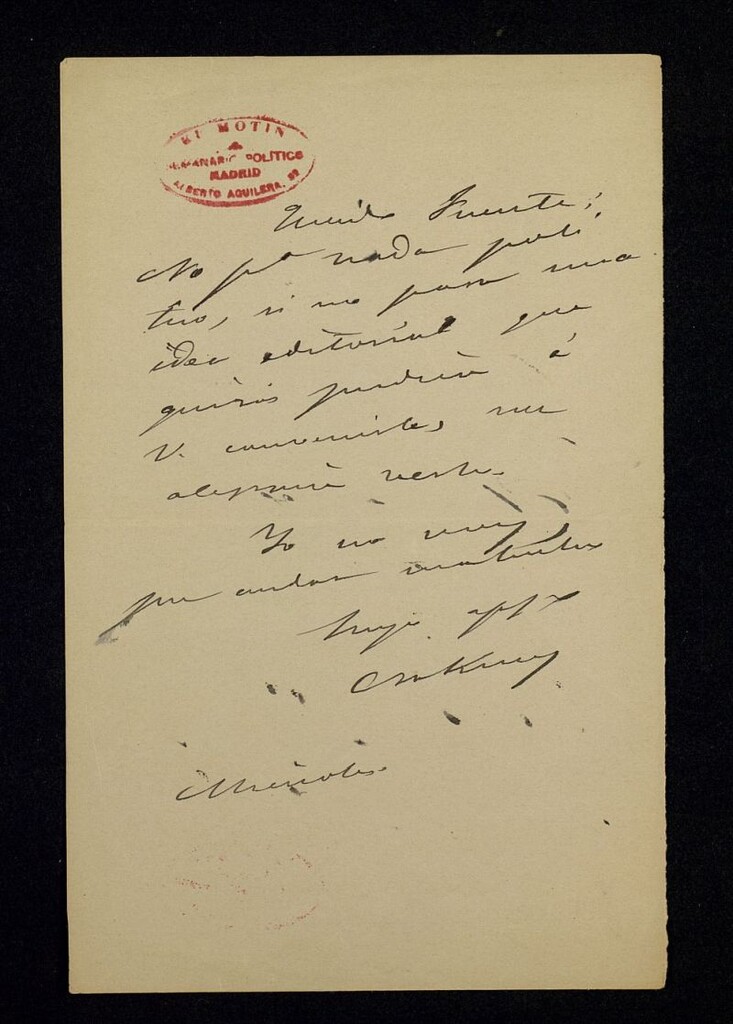 EL MOTIN
SEMANARIO POLÍTICO
MADRID
ALBERTO AGUILERA, 52
Querido Fuente:
No pª nada polí
tico, si no para una
idea editorial que
quizás pudiera á
V. convenirle, me
alegraría verle.
Yo no voy
por andar
Suyo affº
Miércoles